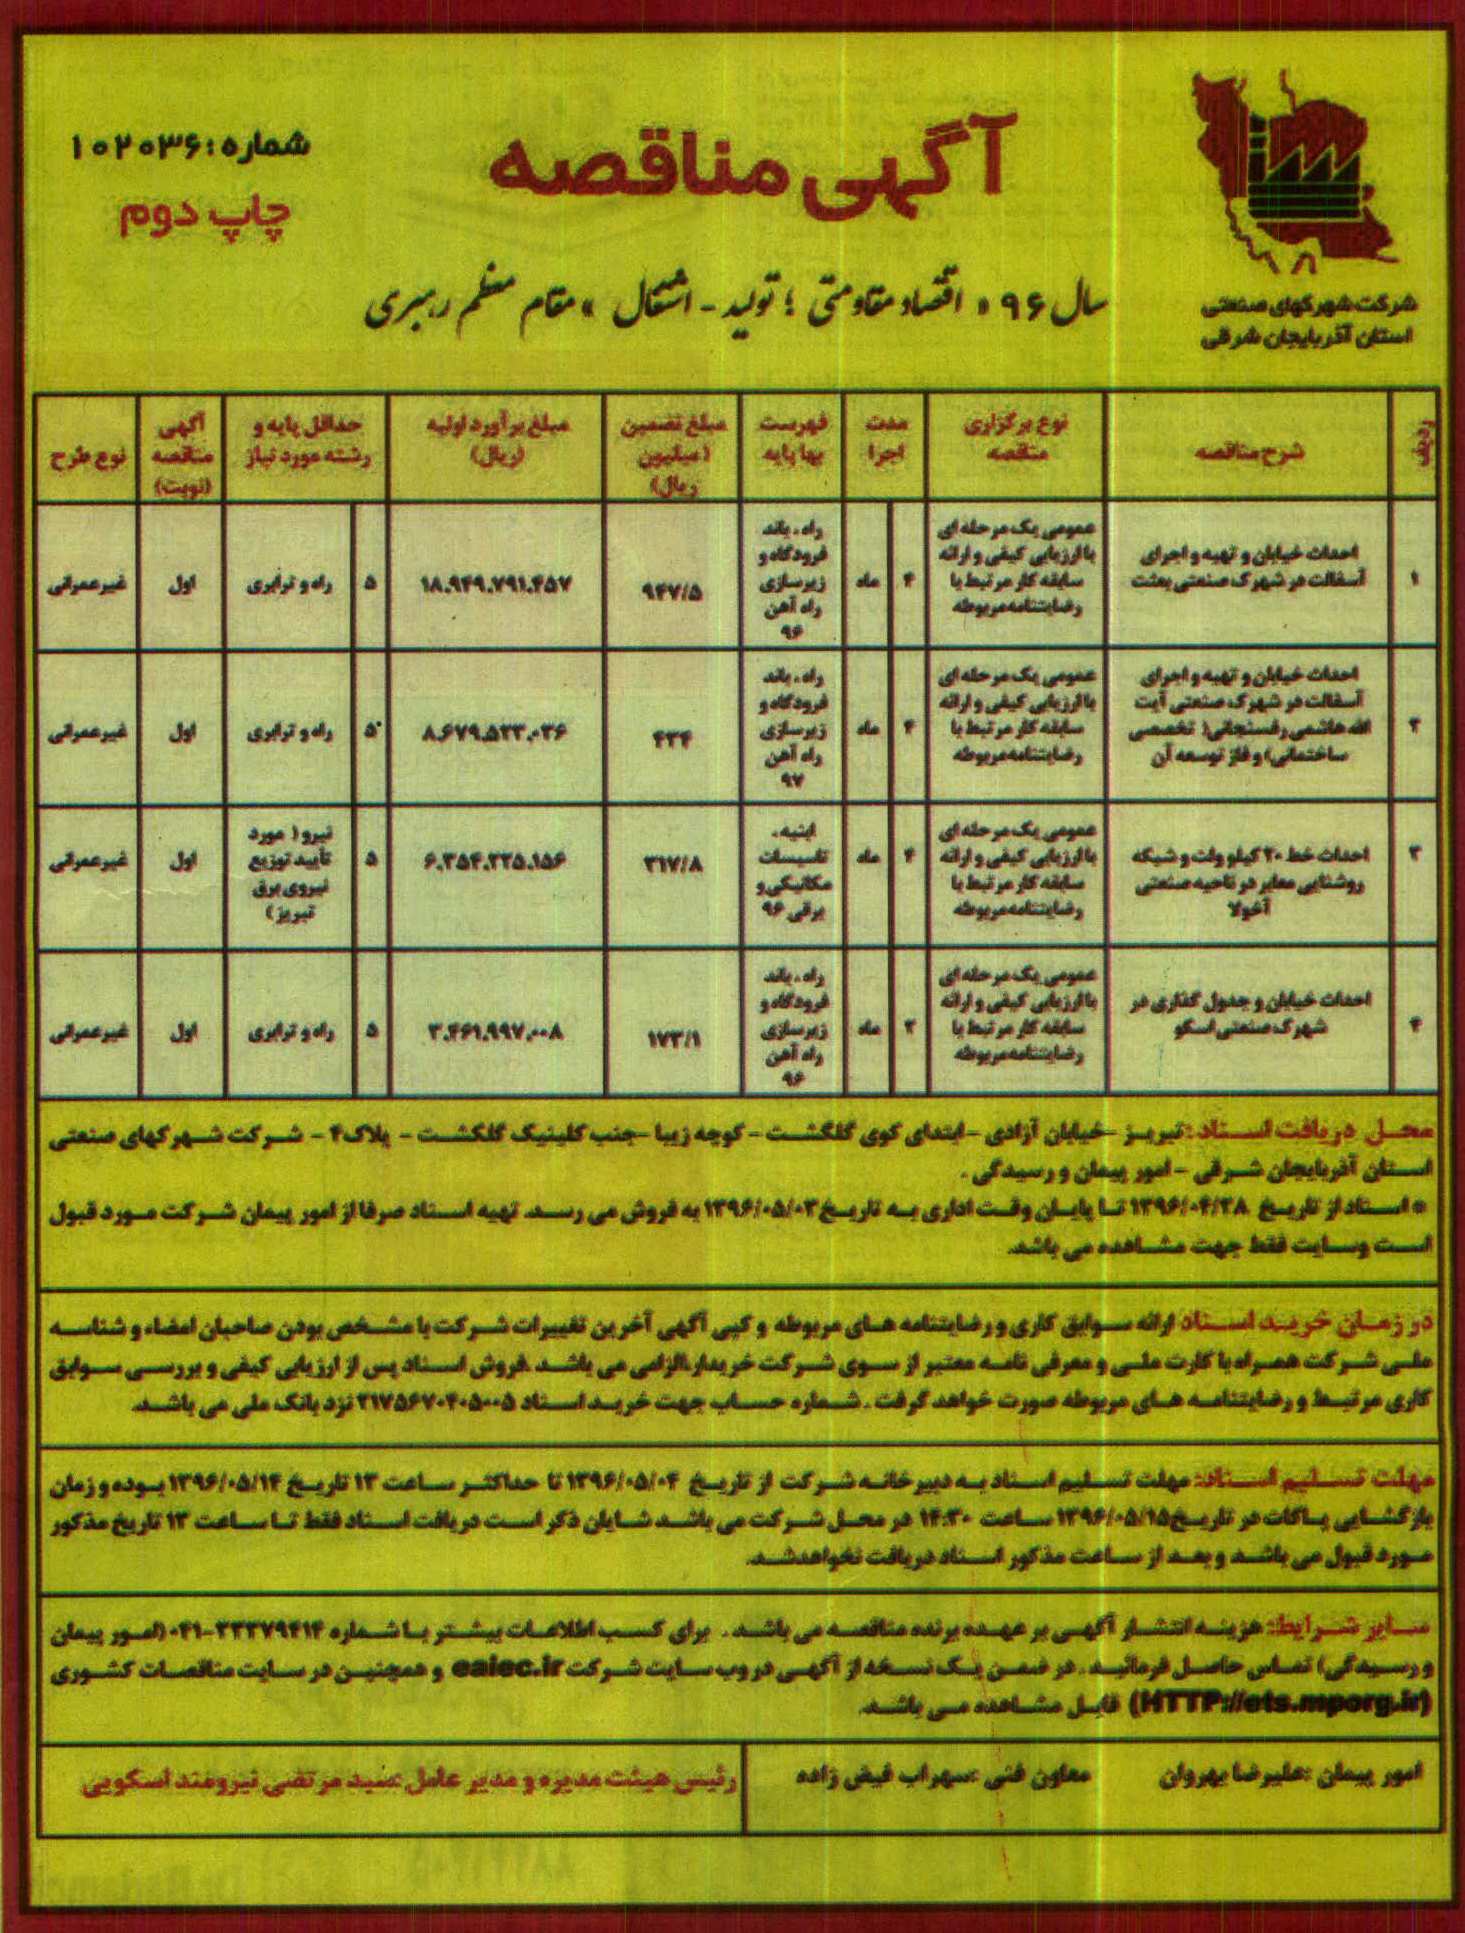 شرکت شهرکهای صنعتی
استان آذربایجان شرقی
آگهی مناقصه
شماره: ۱۰۲۰۳۶
چاپ دوم
سال ۹۶ « اقتصاد مقاومتی ؛ تولید - اشتغال » مقام معظم رهبری
ردیف | شرح مناقصه | نوع برگزاری مناقصه | مدت اجرا | فهرست بها پایه | مبلغ تضمین (میلیون ریال) | مبلغ برآورد اولیه (ریال) | حداقل پایه و رشته مورد نیاز | آگهی مناقصه (نوبت) | نوع طرح
۱ | احداث خیابان و تهیه و اجرای آسفالت در شهرک صنعتی بعثت | عمومی یک مرحله ای با ارزیابی کیفی و ارائه سابقه کار مرتبط با رضایتنامه مربوطه | ۴ ماه | راه، باند فرودگاه و زیرسازی راه آهن ۹۶ | ۹۴۷/۵ | ۱۸.۹۴۹.۷۹۱.۴۵۷ | ۵ راه و ترابری | اول | غیرعمرانی
۲ | احداث خیابان و تهیه و اجرای آسفالت در شهرک صنعتی آیت الله هاشمی رفسنجانی( تخصصی ساختمانی) و فاز توسعه آن | عمومی یک مرحله ای با ارزیابی کیفی و ارائه سابقه کار مرتبط با رضایتنامه مربوطه | ۴ ماه | راه، باند فرودگاه و زیرسازی راه آهن ۹۷ | ۴۳۴ | ۸.۶۷۹.۵۲۳.۰۳۶ | ۵ راه و ترابری | اول | غیرعمرانی
۳ | احداث خط ۲۰ کیلو ولت و شبکه روشنایی معابر در ناحیه صنعتی آخولا | عمومی یک مرحله ای با ارزیابی کیفی و ارائه سابقه کار مرتبط با رضایتنامه مربوطه | ۴ ماه | ابنیه، تاسیسات مکانیکی و برقی ۹۶ | ۳۱۷/۸ | ۶.۳۵۴.۲۲۵.۱۵۶ | ۵ نیرو ( مورد تأیید توزیع نیروی برق تبریز ) | اول | غیرعمرانی
۴ | احداث خیابان و جدول گذاری در شهرک صنعتی اسکو | عمومی یک مرحله ای با ارزیابی کیفی و ارائه سابقه کار مرتبط با رضایتنامه مربوطه | ۳ ماه | راه، باند فرودگاه و زیرسازی راه آهن ۹۶ | ۱۷۳/۱ | ۳.۴۶۱.۹۹۷.۰۰۸ | ۵ راه و ترابری | اول | غیرعمرانی
محل دریافت اسناد: تبریز - خیابان آزادی - ابتدای کوی گلگشت - کوچه زیبا - جنب کلینیک گلگشت - پلاک ۴ - شرکت شهرکهای صنعتی
استان آذربایجان شرقی - امور پیمان و رسیدگی .
* اسناد از تاریخ ۱۳۹۶/۰۴/۲۸ تا پایان وقت اداری به تاریخ ۱۳۹۶/۰۵/۰۳ به فروش می رسد. تهیه اسناد صرفا از امور پیمان شرکت مورد قبول
است و سایت فقط جهت مشاهده می باشد.
در زمان خرید اسناد ارائه سوابق کاری و رضایتنامه های مربوطه و کپی آگهی آخرین تغییرات شرکت با مشخص بودن صاحبان امضاء و شناسه
ملی شرکت همراه با کارت ملی و معرفی نامه معتبر از سوی شرکت خریدار، الزامی می باشد .فروش اسناد پس از ارزیابی کیفی و بررسی سوابق
کاری مرتبط و رضایتنامه های مربوطه صورت خواهد گرفت . شماره حساب جهت خرید اسناد ۲۱۷۵۶۷۰۴۰۵۰۰۵ نزد بانک ملی می باشد.
مهلت تسلیم اسناد: مهلت تسلیم اسناد به دبیرخانه شرکت از تاریخ ۱۳۹۶/۰۵/۰۴ تا حداکثر ساعت ۱۳ تاریخ ۱۳۹۶/۰۵/۱۴ بوده و زمان
بازگشایی پاکات در تاریخ ۱۳۹۶/۰۵/۱۵ ساعت ۱۴:۳۰ در محل شرکت می باشد شایان ذکر است دریافت اسناد فقط تا ساعت ۱۳ تاریخ مذکور
مورد قبول می باشد و بعد از ساعت مذکور اسناد دریافت نخواهد شد.
سایر شرایط: هزینه انتشار آگهی بر عهده برنده مناقصه می باشد . برای کسب اطلاعات بیشتر با شماره ۳۳۳۷۹۴۱۴-۰۴۱ (امور پیمان
و رسیدگی) تماس حاصل فرمائید . در ضمن یک نسخه از آگهی در وب سایت شرکت eaiec.ir و همچنین در سایت مناقصات کشوری
(HTTP://ets.mporg.ir) قابل مشاهده می باشد.
امور پیمان :علیرضا بهروان معاون فنی :سهراب فیض زاده رئیس هیئت مدیره و مدیر عامل :سید مرتضی نیرومند اسکویی